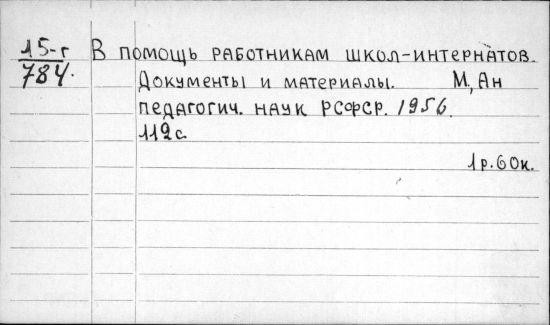 15-г В помощь работникам школ-интернатов.
784. Документы и материалы. М, Ан
педагогич. наук РСФСР. 1956.
112 с.
1р.60к.